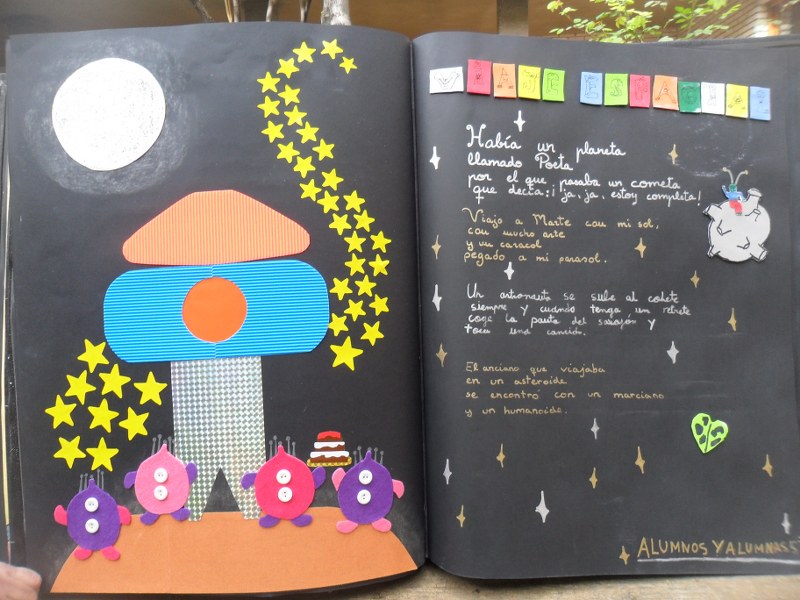 VIAJE ESPACIAL
Había un planeta
llamado Poeta
por el que pasaba un cometa
que decía: ¡ja, ja, estoy completa!
Viajo a Marte con mi sol,
con mucho arte
y un caracol
pegado a mi parasol.
Un astronauta se sube al cohete
siempre y cuando tenga un retrete
coge la pauta del y
toca una canción.
El anciano que viajaba
en un asteroide
se encontró con un marciano
y un humanoide.
ALUMNOS Y ALUMNAS 5